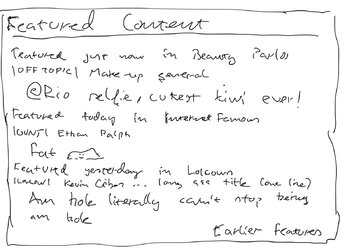 Featured Content
Featured just now in Beauty Parlor
|OFF TOPIC| Make-up general
@Rio selfie, cutest kiwi ever!
Featured today in Internet Famous
|GUNT| Ethan Ralph
Fat
Featured yesterday in Lolcows
Kevin ... long ass title (one line)
Am hole literally can't stop being
am hole
Earlier features